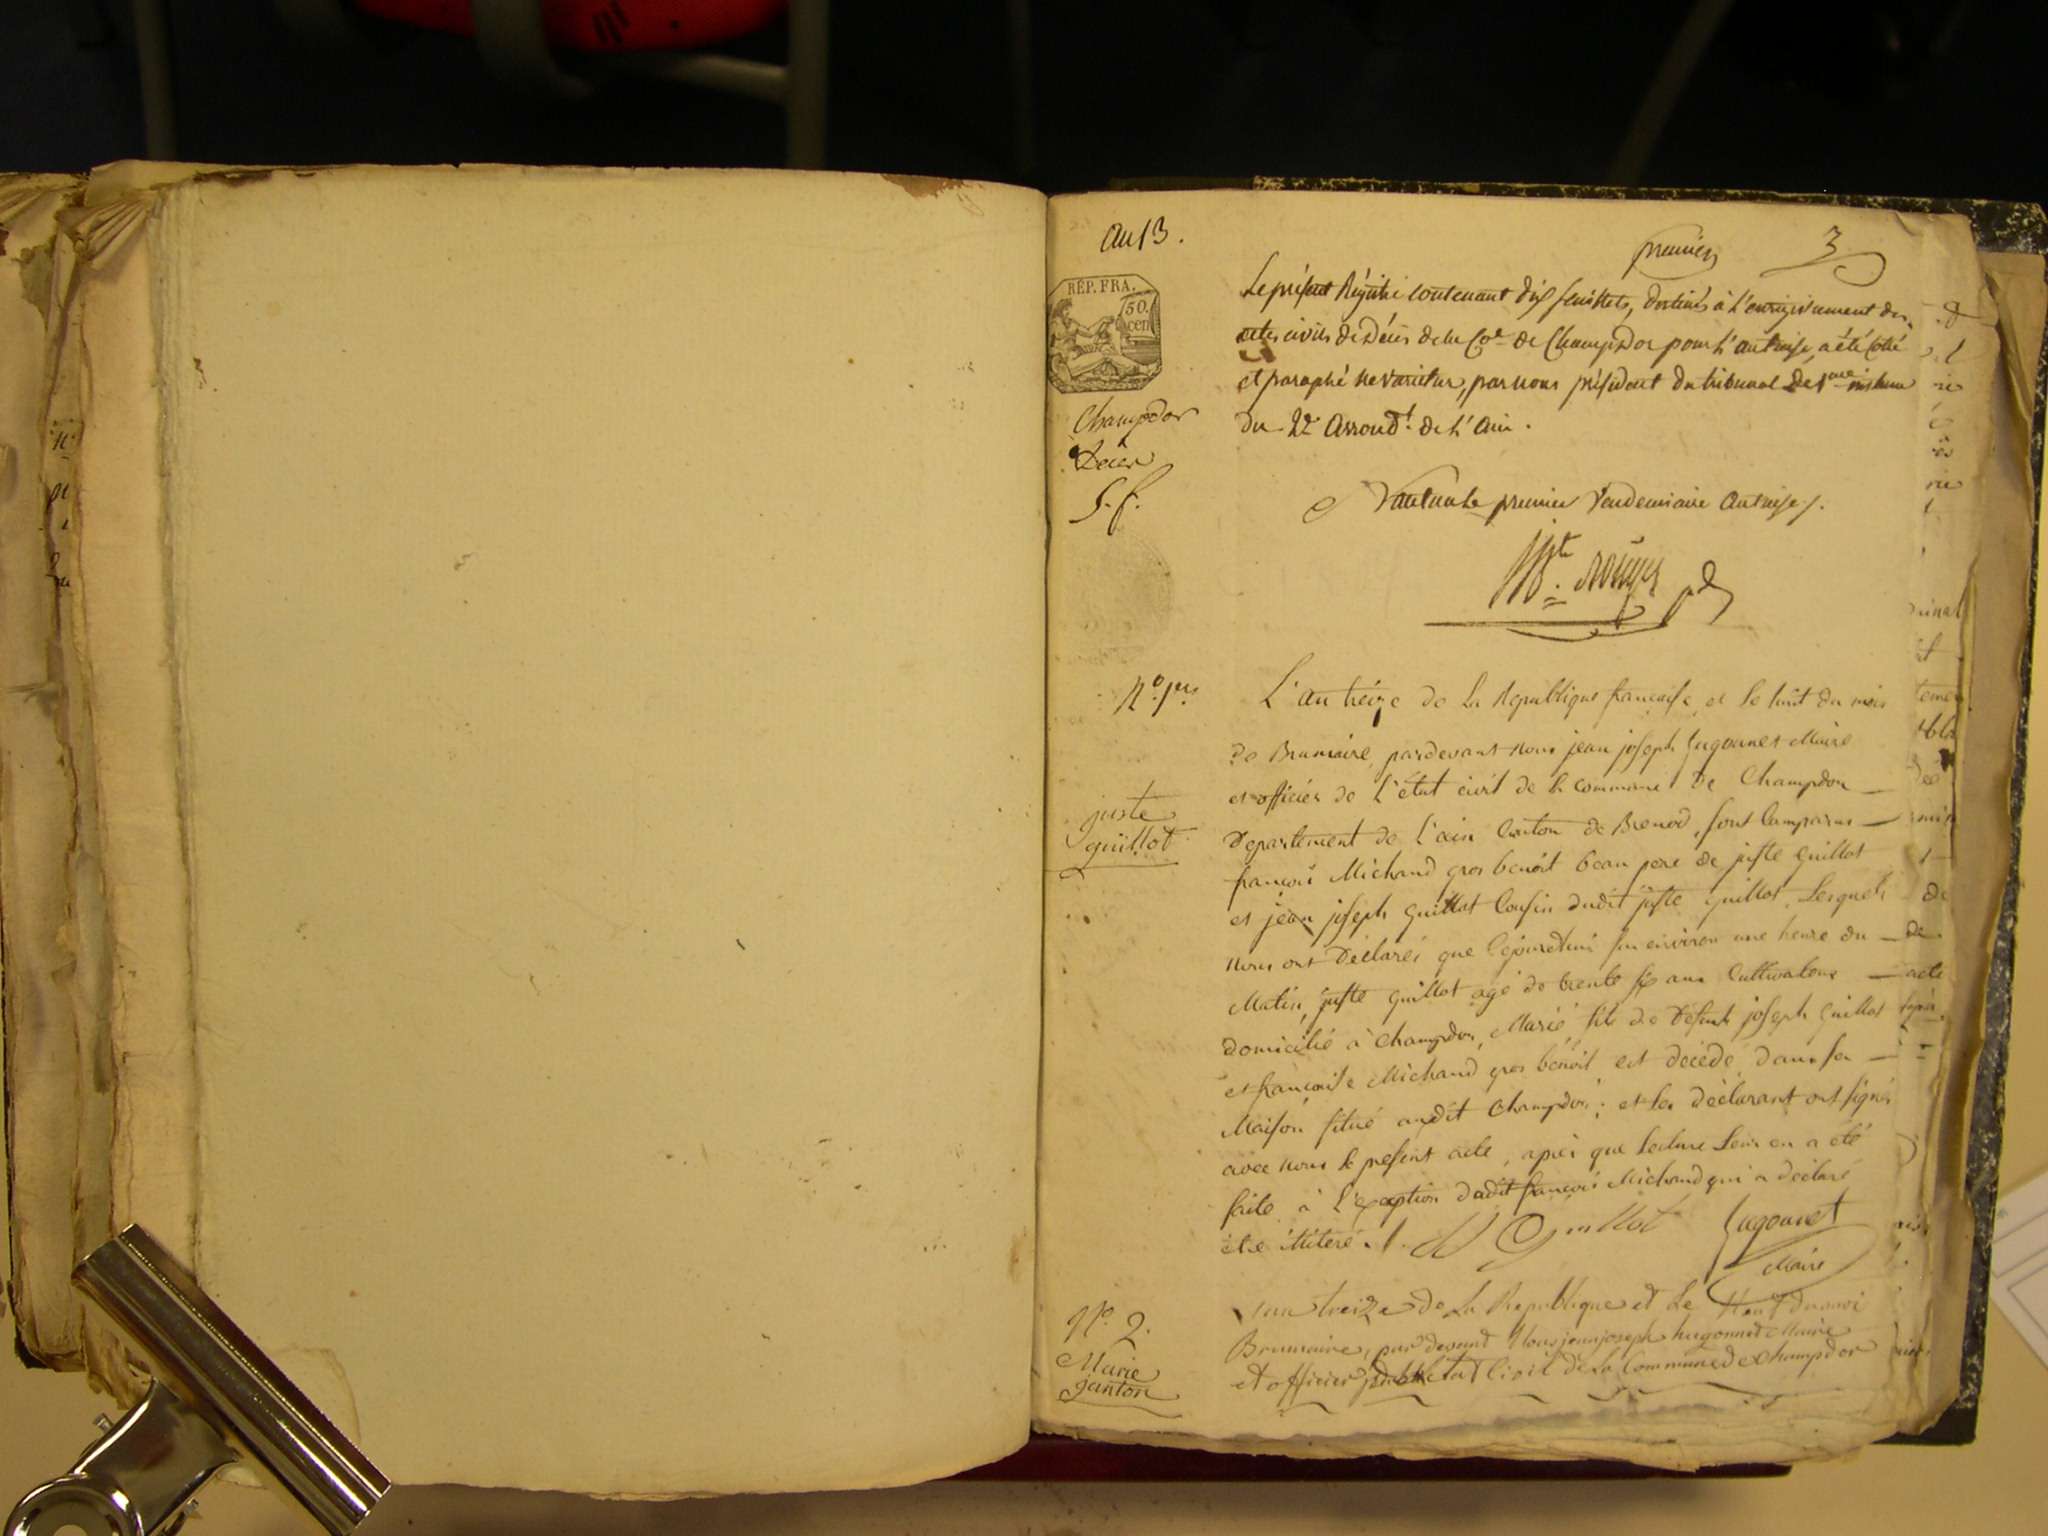 an 13.
premier
3
REP. FRA.
50.
cen
Le présent Régistre contenant dix feuillets, destinés à l'enregistrement des
actes civils de Décès de la Cne de Champdor pour l'an treise, a été Cotté
et paraphé ne varietur, par nous président du tribunal de 1ere instance
du 2e Arrondt. de l'Ain.
Champdor
Décès
S. f.
Nantua le premier Vendemiaire an treise /.
No. 1er
L'an treize de la Republique francaise et le huit du mois
de Brumaire, pardevant nous jean joseph hugonnet Maire
et officier de L'état civil de la commune de Champdor
Departement de l'ain Canton de Brenod, sont Comparus
juste
guillot
francois Michaud gros benoit beau pere de juste guillot
et jean joseph guillot Cousin dudit juste guillot, Lesquels
nous ont Déclarés que cejourdhui sur environ une heure du
Matin, juste guillot agé de trente six ans Cultivateur
domicilié à Champdor, Marié fils de Défunt joseph guillot
et francoise Michaud gros benoit est décédé dans sa
Maison situé audit Champdor; et les déclarant ont signés
avec nous le present acte, après que lecture Leur en a été
faite à l'exception dudit francois Michaud qui a déclaré
etre illiteré. /. JJ Guillot hugonnet
Maire
No. 2.
Marie
janton
L'an treize de La Republique et Le Huit du moi
Brumaire, par devant Nous jean joseph hugonnet Maire
et officier public de letat Civil de La Commune de Champdor